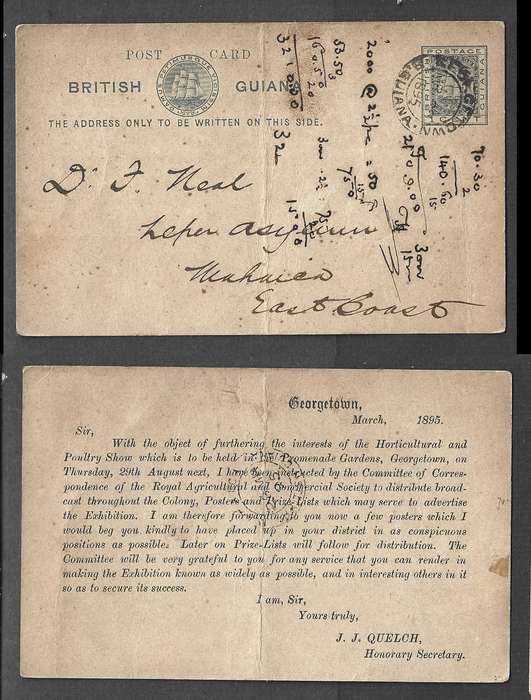 POST CARD
BRITISH GUIANA
THE ADDRESS ONLY TO BE WRITTEN ON THIS SIDE.
POSTAGE
BRITISH
GUIANA
1895
Dr. F. Neal
Leper Asylum
Mahaica
East Coast
2000 @ 2½ pc = 50
53.50
3
160.50
70.30
2
140.60
15
Georgetown,
March, 1895.
Sir,
With the object of furthering the interests of the Horticultural and
Poultry Show which is to be held in the Promenade Gardens, Georgetown, on
Thursday, 29th August next, I have been instructed by the Committee of Corres-
pondence of the Royal Agricultural and Commercial Society to distribute broad-
cast throughout the Colony, Posters and Prize-Lists which may serve to advertise
the Exhibition. I am therefore forwarding to you now a few posters which I
would beg you kindly to have placed up in your district in as conspicuous
positions as possible. Later on Prize-Lists will follow for distribution. The
Committee will be very grateful to you for any service that you can render in
making the Exhibition known as widely as possible, and in interesting others in it
so as to secure its success.
I am, Sir,
Yours truly,
J. J. QUELCH,
Honorary Secretary.